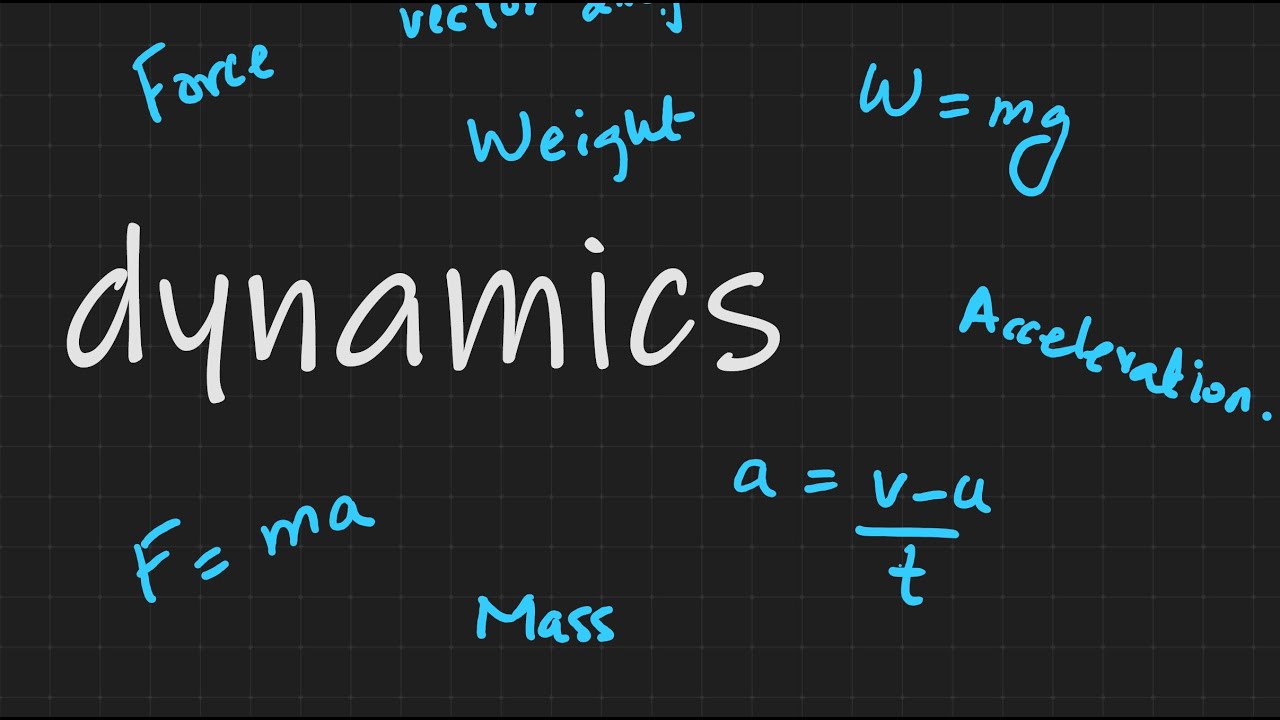 vector
Force
Weight
W = mg
dynamics
Acceleration.
a = v-u
t
F = ma
Mass